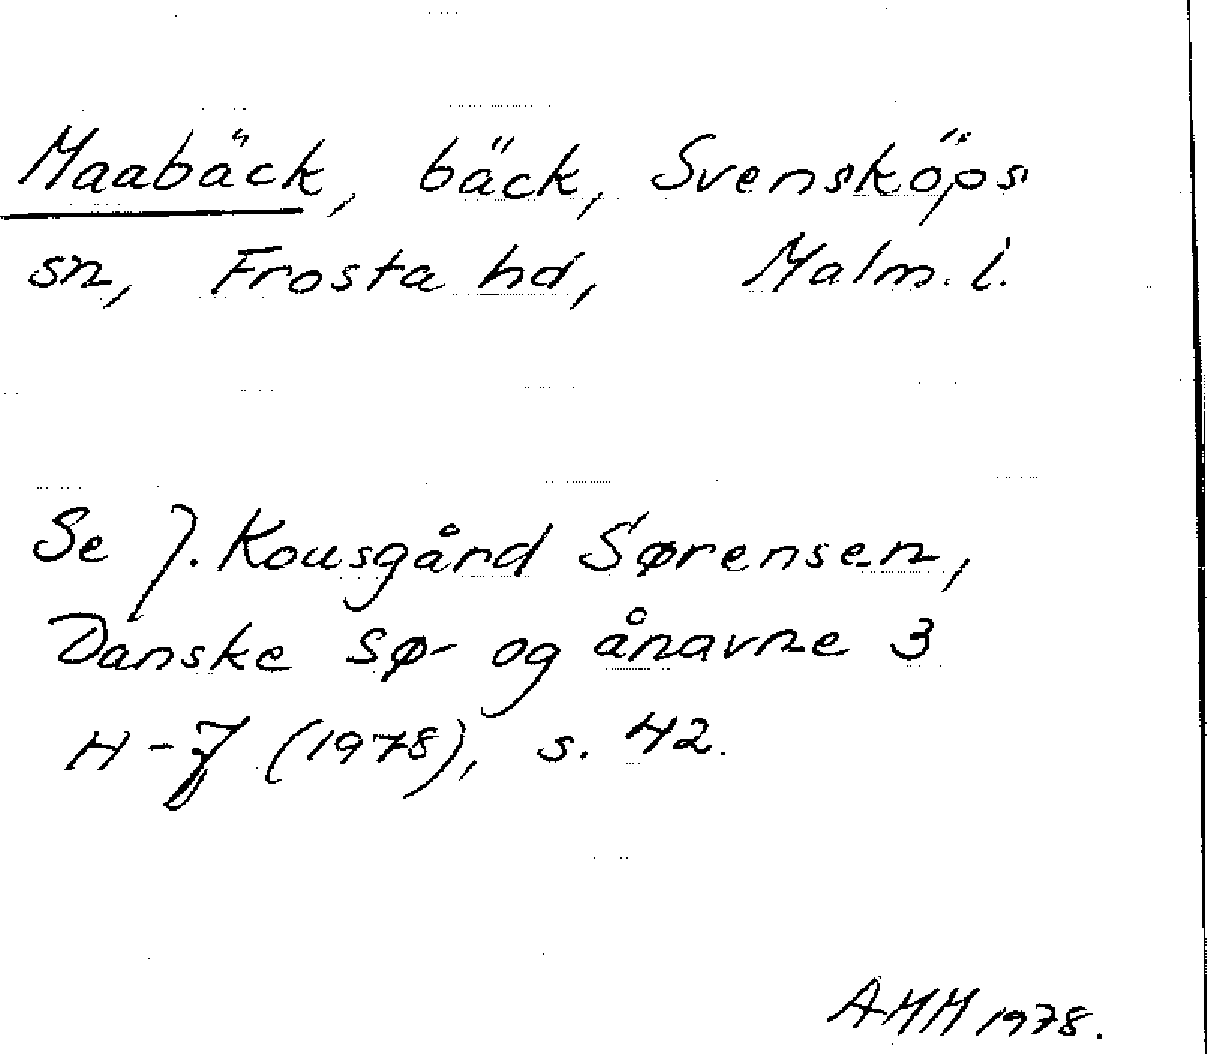 Maabäck, bäck, Svensköps
sn, Frosta hd, Malm. l.
Se J. Kousgård Sørensen,
Danske sø- og ånavne 3
H-J (1978), s. 42.
AHH 1978.